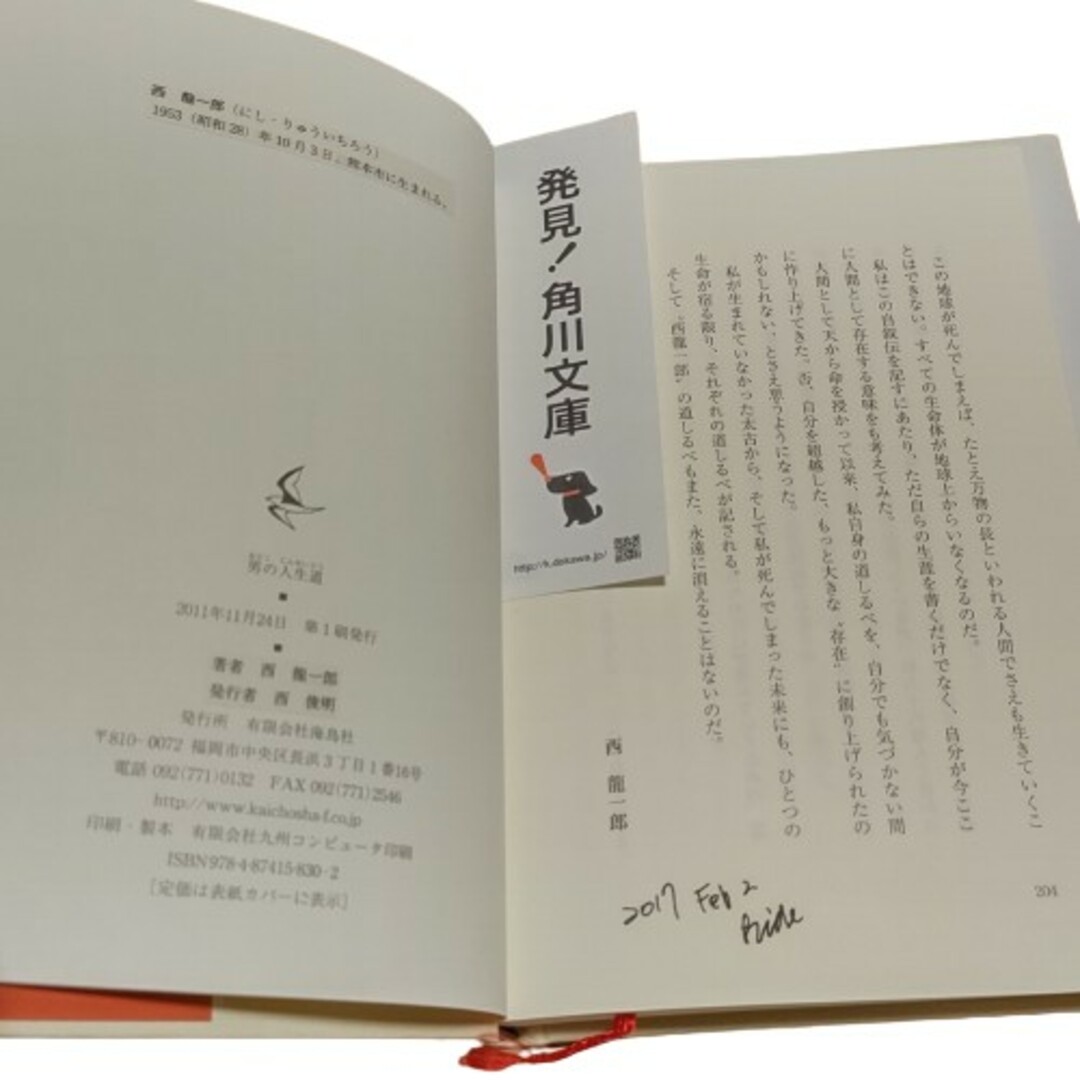 西 龍一郎(にし・りゅういちろう)
1953(昭和28)年10月3日、熊本市に生まれる。
男の人生道
2011年11月24日 第1刷発行
著者 西 龍一郎
発行者 西 俊明
発行所 有限会社海鳥社
〒810-0072 福岡市中央区長浜3丁目1番16号
電話 092(771)0132 FAX 092(771)2546
http://www.kaichosha-f.co.jp
印刷・製本 有限会社九州コンピュータ印刷
ISBN 978-4-87415-830-2
[定価は表紙カバーに表示]
発見!角川文庫
http://k.dokawa.jp/
この地球が死んでしまえば、たとえ万物の長といわれる人間でさえも生きていくこ
とはできない。すべての生命体が地球上からいなくなるのだ。
私はこの自叙伝を記すにあたり、ただ自らの生涯を書くだけでなく、自分が今ここ
に人間として存在する意味をも考えてみた。
人間として天から命を授かって以来、私自身の道しるべを、自分でも気づかない間
に作り上げてきた。否、自分を超越した、もっと大きな〝存在〟に創り上げられたの
かもしれない、とさえ思うようになった。
私が生まれていなかった太古から、そして私が死んでしまった未来にも、ひとつの
生命が宿る限り、それぞれの道しるべが記される。
そして〝西龍一郎〟の道しるべもまた、永遠に消えることはないのだ。
西 龍一郎
2017 Feb 2
204